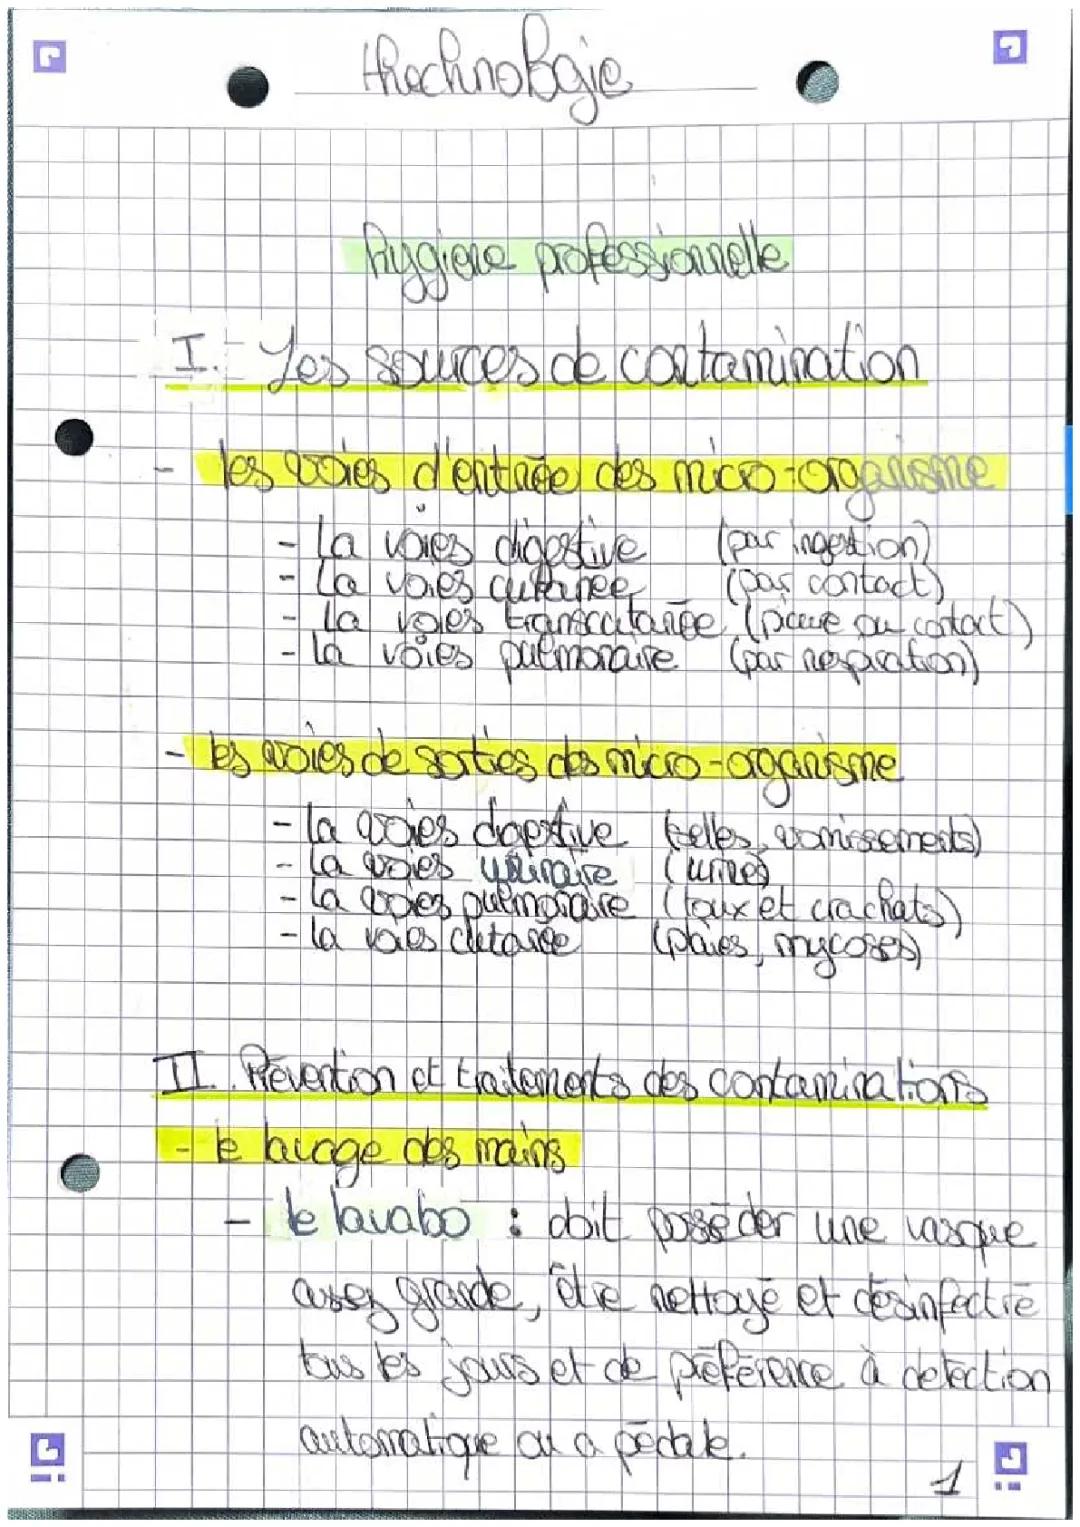 thechnologie
hygiene professionnelle
I. - Les sources de contamination
- les voies d'entrée des micro-organisme
- La voies digestive (par ingestion)
- La voies cutanee (par contact)
- La voies transcutanée (picure ou contact)
- la voies pulmonaire (par respiration)
- les voies de sorties des micro-organisme
- la voies digestive (selles, vomissements)
- la voies urinaire (urines)
- la voies pulmonaire (toux et crachats)
- la voies cutanée (plaies, mycoses)
II. Prévention et traitements des contaminations
- le lavage des mains
- le lavabo : doit posséder une vasque
assez grande, être nettoyé et désinfectré
tous les jours et de préférence à detection
automatique ou a pédale.
1